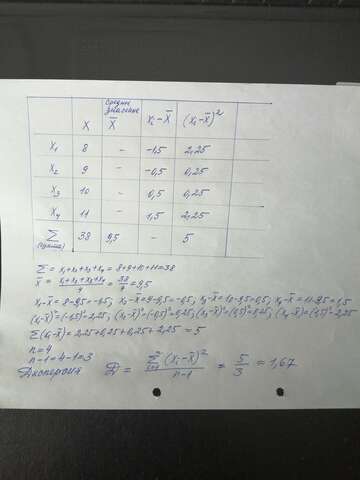 X Среднее значение X̄ xᵢ-X̄ (xᵢ-X̄)²
X₁ 8 - -1,5 2,25
X₂ 9 - -0,5 0,25
X₃ 10 - 0,5 0,25
X₄ 11 - 1,5 2,25
∑ 38 9,5 - 5
∑ = x₁+x₂+x₃+x₄ = 8+9+10+11=38
X̄ = x₁+x₂+x₃+x₄ / 4 = 38 / 4 = 9,5
(xᵢ-X̄)²=(-1,5)²=2,25; (x₂-X̄)²=(-0,5)²=0,25; (x₃-X̄)²=(0,5)²=0,25; (x₄-X̄)²=(1,5)²=2,25
∑(xᵢ-X̄)= 2,25+0,25+0,25+2,25 = 5
n=4
n-1=4-1=3
Дисперсия D = ∑(xᵢ-X̄)² / n-1 = 5 / 3 = 1,67